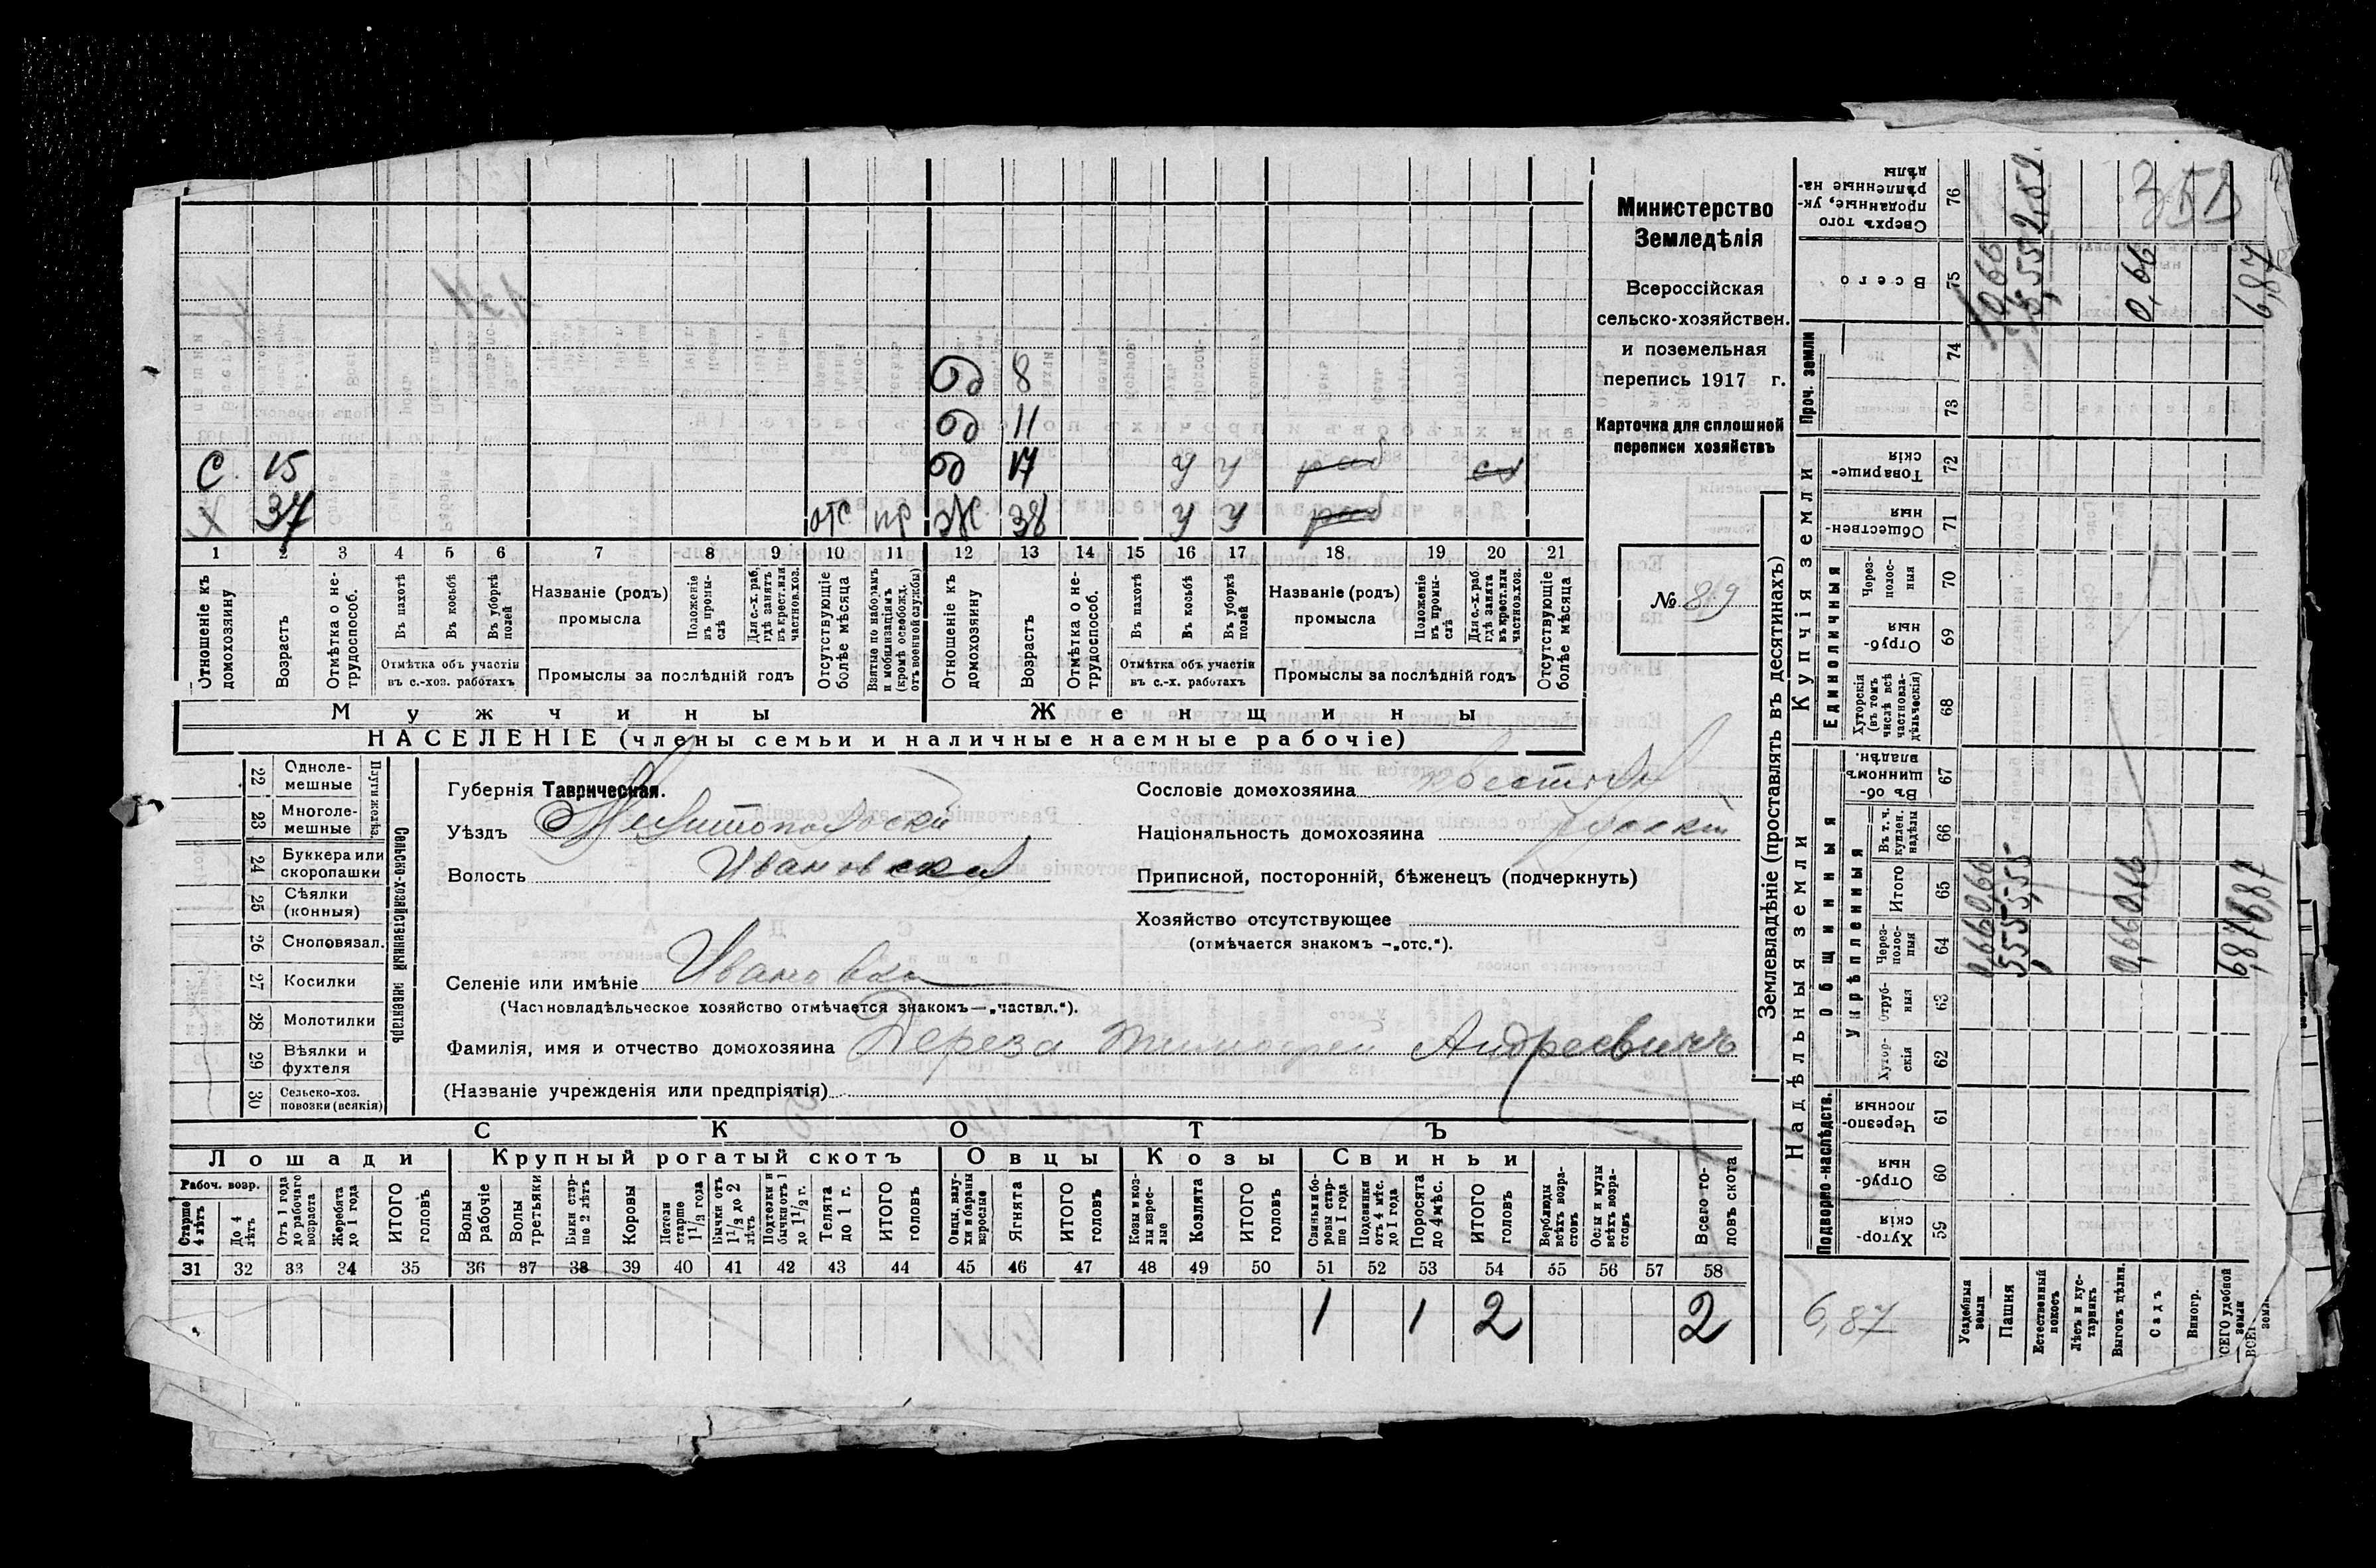 од 8
од 11
С. 15 од 17 у у раб сх
Х 37 отс пр Ж. 38 у у раб
1 2 3 4 5 6 7 8 9 10 11 12 13 14 15 16 17 18 19 20 21
Отношеніе къ домохозяину
Возрастъ
Отмѣтка о нетрудоспособ.
Въ пахотѣ
Въ косьбѣ
Въ уборкѣ полей
Отмѣтка объ участіи
въ с.-хоз. работахъ
Названіе (родъ)
промысла
Положеніе въ промыслѣ
Для с.-х. раб. гдѣ занятъ въ крест. или частнов. хоз.
Промыслы за послѣдній годъ
Отсутствующіе болѣе мѣсяца
Взятые по наборамъ и мобилизаціямъ (кромѣ освобожд. отъ военной службы)
Отношеніе къ домохозяину
Возрастъ
Отмѣтка о нетрудоспособ.
Въ пахотѣ
Въ косьбѣ
Въ уборкѣ полей
Отмѣтка объ участіи
въ с.-х. работахъ
Названіе (родъ)
промысла
Положеніе въ промыслѣ
Для с.-х. раб. гдѣ занята въ крест. или частнов. хоз.
Промыслы за послѣдній годъ
Отсутствующіе болѣе мѣсяца
Мужчины Женщины
НАСЕЛЕНІЕ (члены семьи и наличные наемные рабочіе)
Министерство
Земледѣлія
Всероссійская
сельско-хозяйствен.
и поземельная
перепись 1917 г.
Карточка для сплошной
переписи хозяйствъ
№ 89
22 Однолемешные
23 Многолемешные
Плуги желѣз.
24 Буккера или скоропашки
25 Сѣялки (конныя)
26 Сноповязал.
27 Косилки
28 Молотилки
29 Вѣялки и фухтеля
30 Сельско-хоз. повозки (всякія)
Сельско-хозяйственный инвентарь
Губернія Таврическая.
Уѣздъ Мелитопольскій
Волость Ивановская
Селеніе или имѣніе Ивановка
(Частновладѣльческое хозяйство отмѣчается знакомъ—„частвл.“).
Фамилія, имя и отчество домохозяина Дереза Тимофей Андреевичъ
(Названіе учрежденія или предпріятія)
Сословіе домохозяина
Національность домохозяина
Приписной, посторонній, бѣженецъ (подчеркнуть)
Хозяйство отсутствующее
(отмѣчается знакомъ —„отс.“).
СКОТЪ
Лошади Крупный рогатый скотъ Овцы Козы Свиньи
Рабоч. возр.
Старше 4 лѣтъ
До 4 лѣтъ
Отъ 1 года до рабочаго возраста
Жеребята до 1 года
ИТОГО головъ
Волы рабочіе
Волы третьяки
Быки старше 2 лѣтъ
Коровы
Нетели старше 1 1/2 года
Бычки отъ 1 1/2 до 2 лѣтъ
Подтелки и бычки отъ 1 до 1 1/2 г.
Телята до 1 г.
ИТОГО головъ
Овцы, валухи и бараны взрослые
Ягнята
ИТОГО головъ
Козы и козлы взрослые
Козлята
ИТОГО головъ
Свиньи и боровы старше 1 года
Подсвинки отъ 4 мѣс. до 1 года
Поросята до 4 мѣс.
ИТОГО головъ
Верблюды всѣхъ возрастовъ
Ослы и мулы всѣхъ возрастовъ
Всего головъ скота
31 32 33 34 35 36 37 38 39 40 41 42 43 44 45 46 47 48 49 50 51 52 53 54 55 56 57 58
1 1 2 2
Землевладѣніе (проставлять въ десятинахъ)
Надѣльныя земли
Купчія земли
Проч. земли
Подворно-наслѣдств.
Общинныя
Укрѣпленныя
Единоличныя
Хуторскія 59
Отрубныя 60
Черезполосныя 61
Хуторскія 62
Отрубныя 63
Черезполосныя 64
Итого 65
Въ т. ч. куплен. надѣлы 66
Въ общинномъ владѣн. 67
Хуторскія (въ томъ числѣ всѣ частновладѣльческія) 68
Отрубныя 69
Черезполосныя 70
Общественныя 71
Товарищескія 72
73
74
Всего 75
Сверхъ того проданные, укрѣпленные надѣлы 76
Усадебныя земли 0,66 0,66 0,66
Пашня 5,55 5,55 5,55 2,59
Естественный покосъ
Лѣсъ и кустарникъ
Выгонъ цѣлин. 0,66 0,66 0,66
Садъ
Виногр.
ВСЕГО удобной земли 6,87 6,87 6,87
6,87